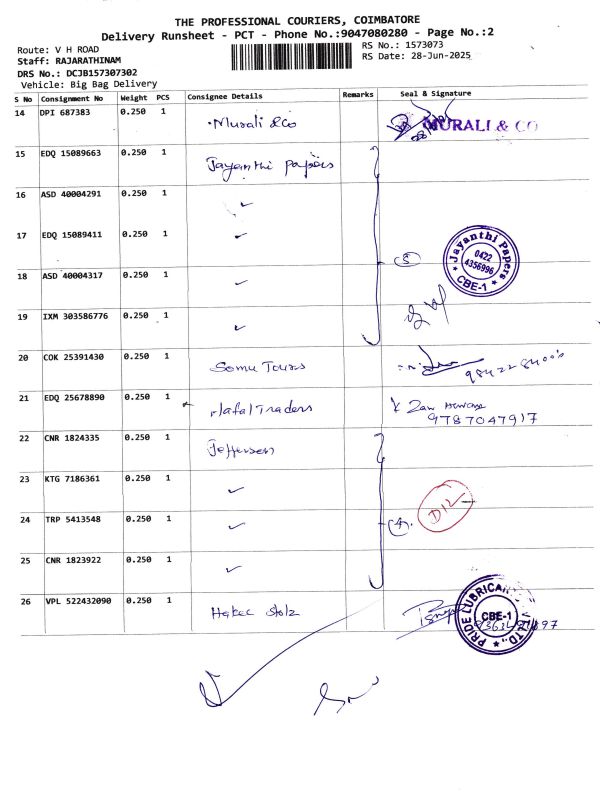 THE PROFESSIONAL COURIERS, COIMBATORE
Delivery Runsheet - PCT - Phone No.:9047080280 - Page No.:2
Route: V H ROAD
RS No.: 1573073
Staff: RAJARATHINAM
RS Date: 28-Jun-2025
DRS No.: DCJB157307302
Vehicle: Big Bag Delivery
S No Consignment No Weight PCS Consignee Details Remarks Seal & Signature
14 DPI 687383 0.250 1 Murali & Co MURALI & CO
15 EDQ 15089663 0.250 1 Jayanthi papers
16 ASD 40004291 0.250 1 ✓
17 EDQ 15089411 0.250 1 ✓
(5) Jayanthi Papers 0422 4356996 CBE-1
18 ASD 40004317 0.250 1 ✓
19 IXM 303586776 0.250 1 ✓
20 COK 25391430 0.250 1 Somu Tours
21 EDQ 25678890 0.250 1 Traders
9787047917
22 CNR 1824335 0.250 1 Jefferson
23 KTG 7186361 0.250 1 ✓
24 TRP 5413548 0.250 1 ✓ (4)
25 CNR 1823922 0.250 1 ✓
26 VPL 522432090 0.250 1 PRIDE LUBRICAN LTD., CBE-1